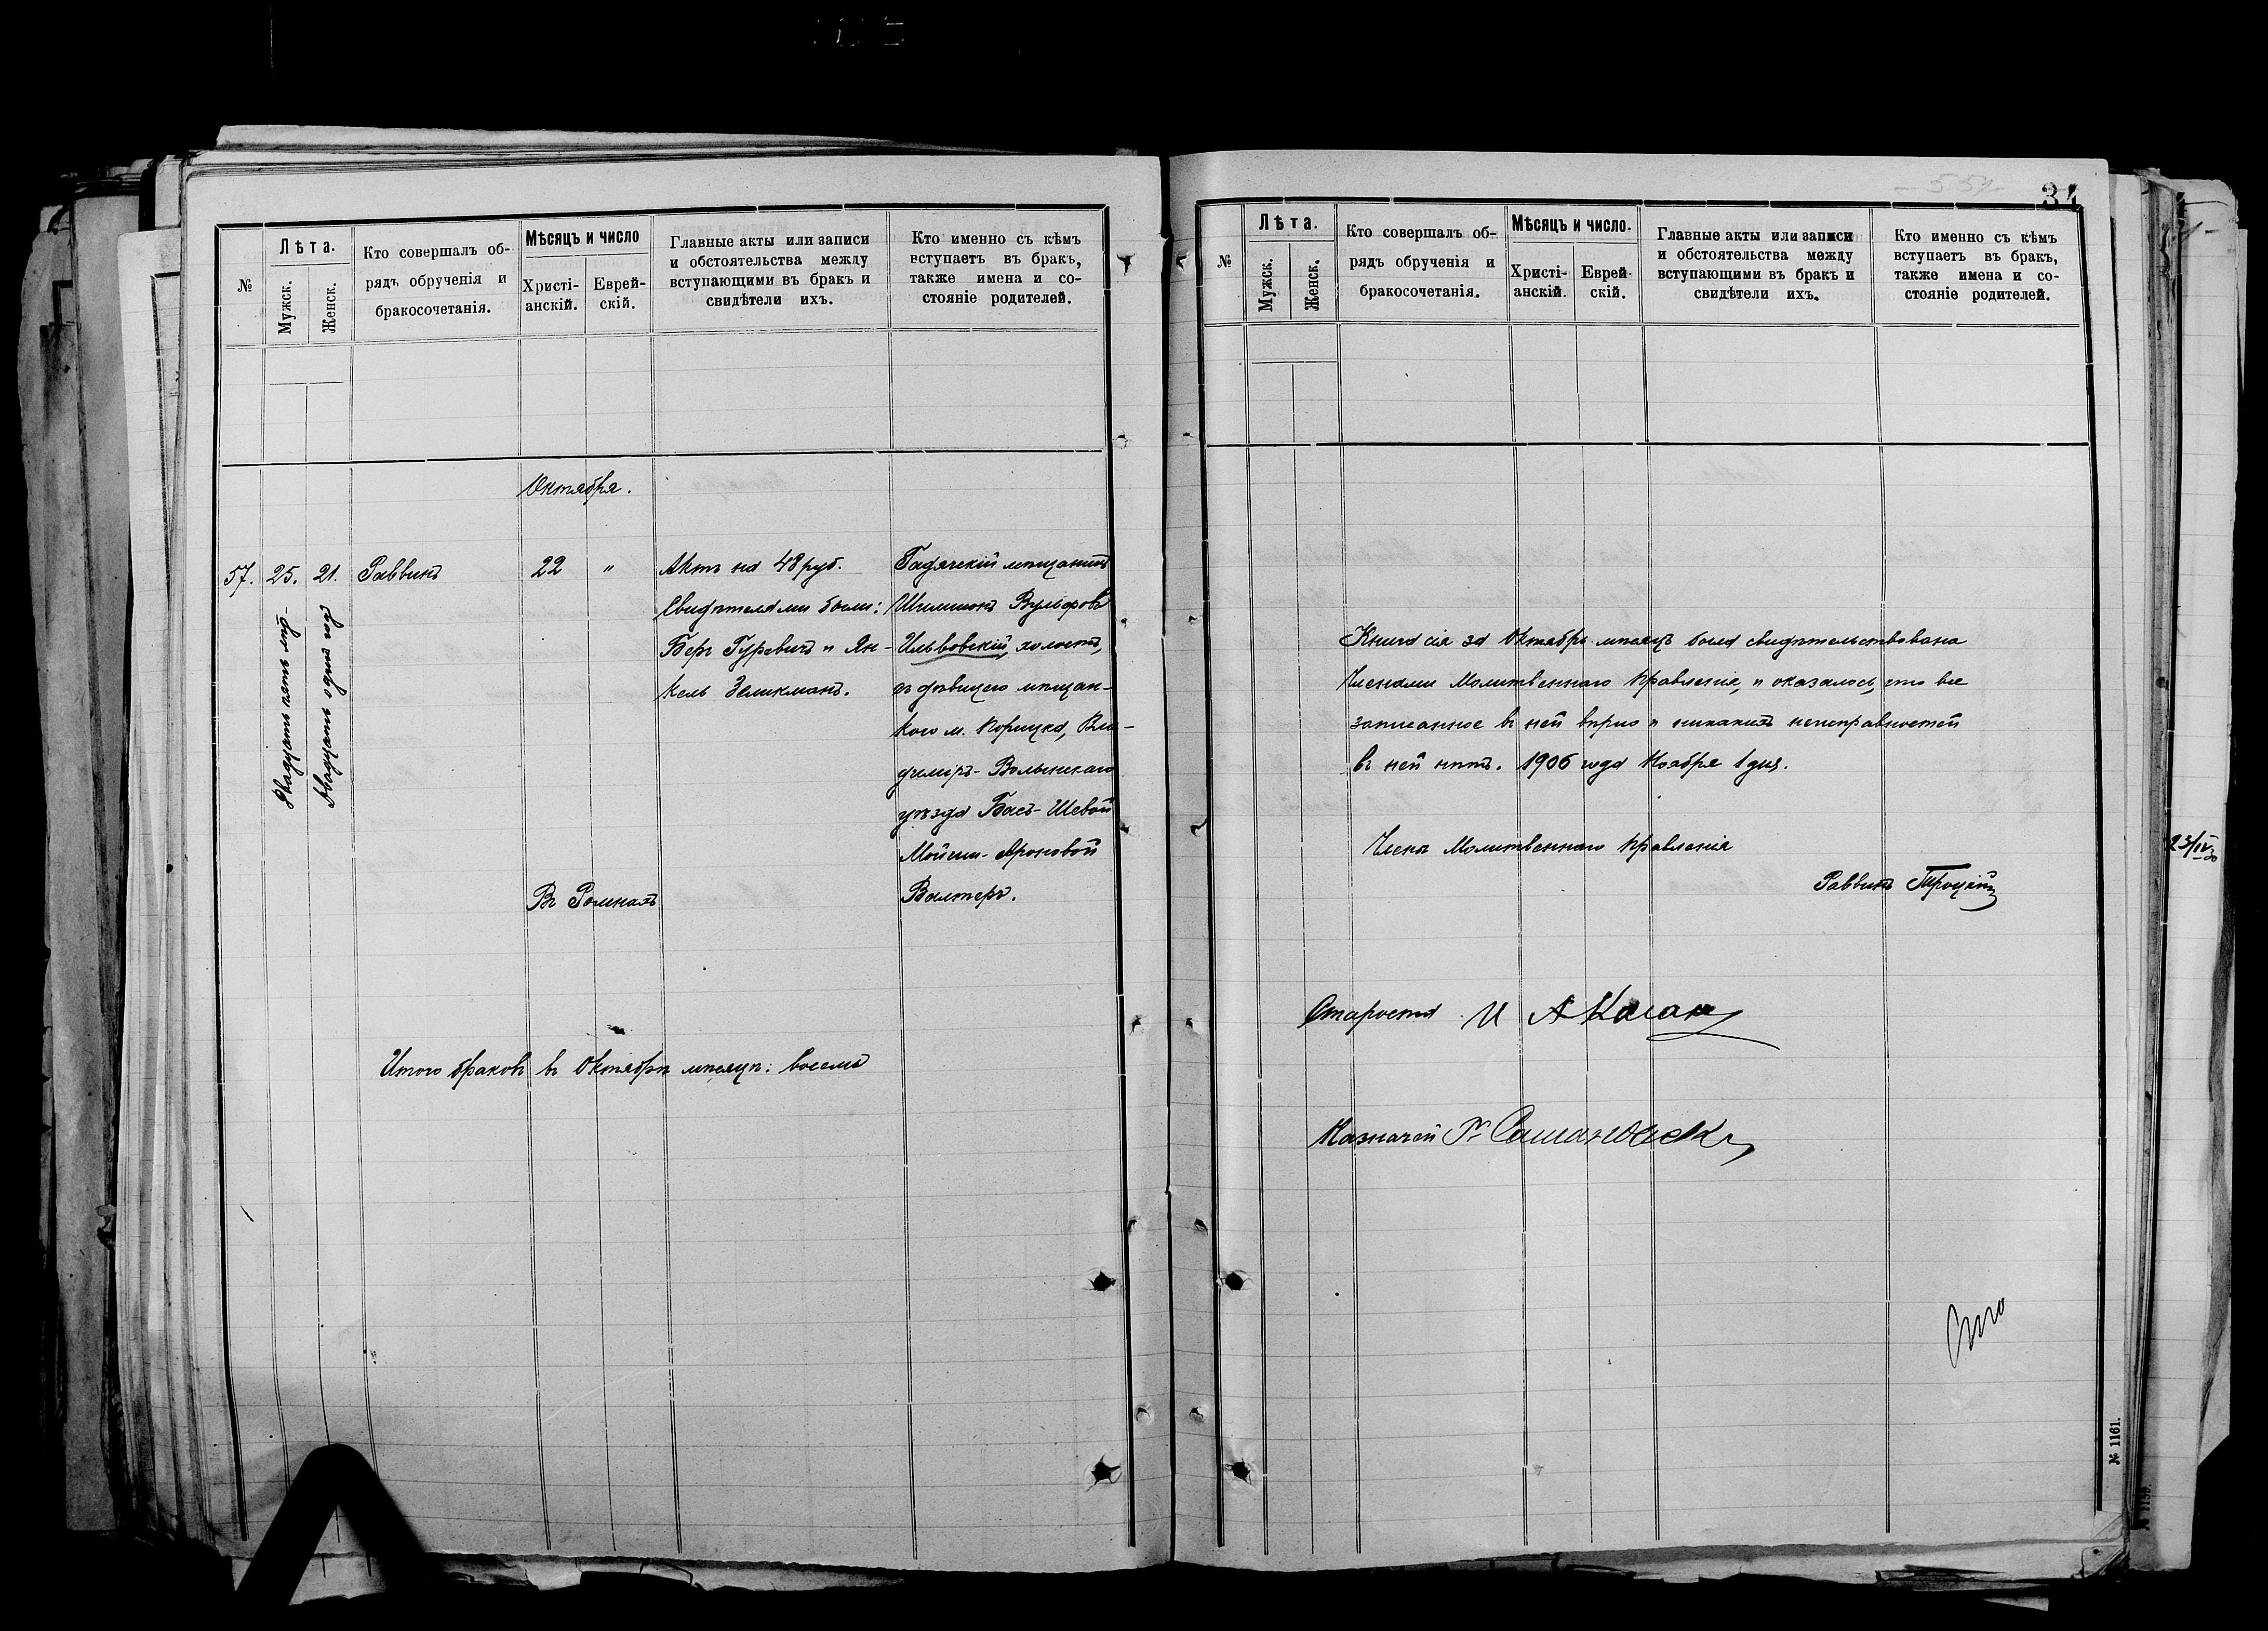 №
Лѣта.
Мужск.
Женск.
Кто совершалъ об-
рядъ обрученія и
бракосочетанія.
Мѣсяцъ и число
Христі-
анскій.
Еврей-
скій.
Главные акты или записи
и обстоятельства между
вступающими въ бракъ и
свидѣтели ихъ.
Кто именно съ кѣмъ
вступаетъ въ бракъ,
также имена и со-
стояніе родителей.
Октября.
57.
25.
Двадцать пять лѣтъ
21.
Двадцать одинъ годъ
Раввинъ
22
"
Въ Ромнахъ
Актъ на 48 руб.
Свидѣтелями были:
Беръ Гуревичъ и Ян-
кель Зеликманъ.
Гадячскій мѣщанинъ
Шлиомъ Вульфовъ
Ильвовскій, холостъ,
съ дѣвицею мѣщан-
кою м. Порицка, Вла-
диміръ-Волынскаго
уѣзда Бася-Шевой
Мойсеи-Ароновой
Валтеръ.
Итого браковъ въ Октябрѣ мѣсяцѣ: восемь
34
№
Лѣта.
Мужск.
Женск.
Кто совершалъ об-
рядъ обрученія и
бракосочетанія.
Мѣсяцъ и число.
Христі-
анскій.
Еврей-
скій.
Главные акты или записи
и обстоятельства между
вступающими въ бракъ и
свидѣтели ихъ.
Кто именно съ кѣмъ
вступаетъ въ бракъ,
также имена и со-
стояніе родителей.
Книга сія за Октябрь мѣсяцъ была свидѣтельствована
Членами Молитвеннаго Правленія, и оказалось, что все
записанное въ ней вѣрно и никакихъ неисправностей
въ ней нѣтъ. 1906 года Ноября 1 дня.
Члены Молитвеннаго Правленія
Раввинъ Троцкій
Староста И А Каган
Казначей
№ 1161.